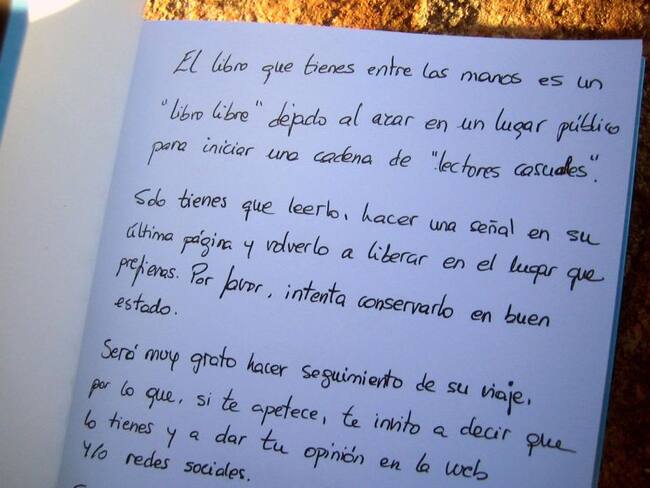 El libro que tienes entre las manos es un
"libro libre" dejado al azar en un lugar público
para iniciar una cadena de "lectores casuales".
Solo tienes que leerlo, hacer una señal en su
última página y volverlo a liberar en el lugar que
prefieras. Por favor, intenta conservarlo en buen
estado.
Será muy grato hacer seguimiento de su viaje,
por lo que, si te apetece, te invito a decir que
lo tienes y a dar tu opinión en la web
y/o redes sociales.